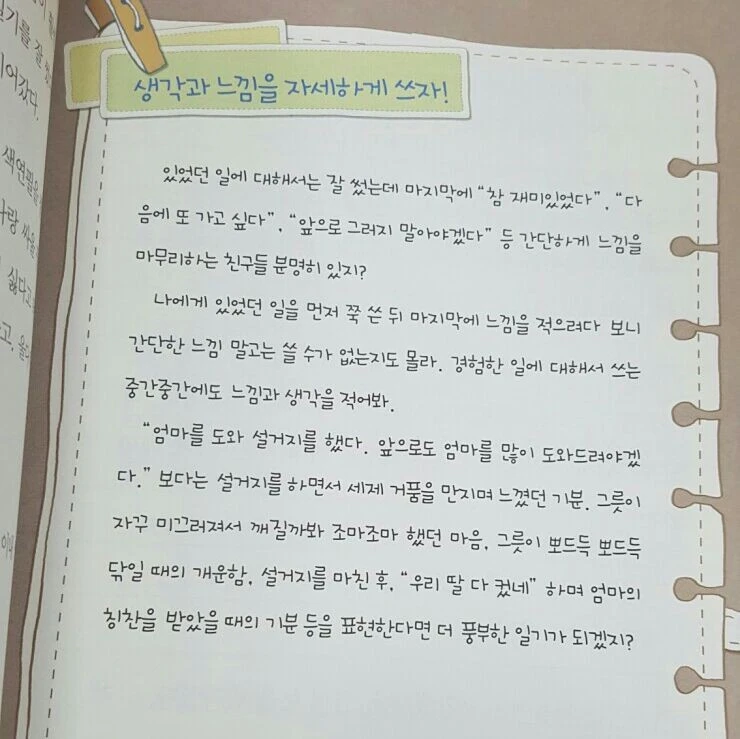 생각과 느낌을 자세하게 쓰자!
있었던 일에 대해서는 잘 썼는데 마지막에 “참 재미있었다”, “다
음에 또 가고 싶다”, “앞으로 그러지 말아야겠다” 등 간단하게 느낌을
마무리하는 친구들 분명히 있지?
나에게 있었던 일을 먼저 쭉 쓴 뒤 마지막에 느낌을 적으려다 보니
간단한 느낌 말고는 쓸 수가 없는지도 몰라. 경험한 일에 대해서 쓰는
중간중간에도 느낌과 생각을 적어봐.
“엄마를 도와 설거지를 했다. 앞으로도 엄마를 많이 도와드려야겠
다.” 보다는 설거지를 하면서 세제 거품을 만지며 느꼈던 기분, 그릇이
자꾸 미끄러져서 깨질까봐 조마조마 했던 마음, 그릇이 뽀드득 뽀드득
닦일 때의 개운함, 설거지를 마친 후, “우리 딸 다 컸네” 하며 엄마의
칭찬을 받았을 때의 기분 등을 표현한다면 더 풍부한 일기가 되겠지?